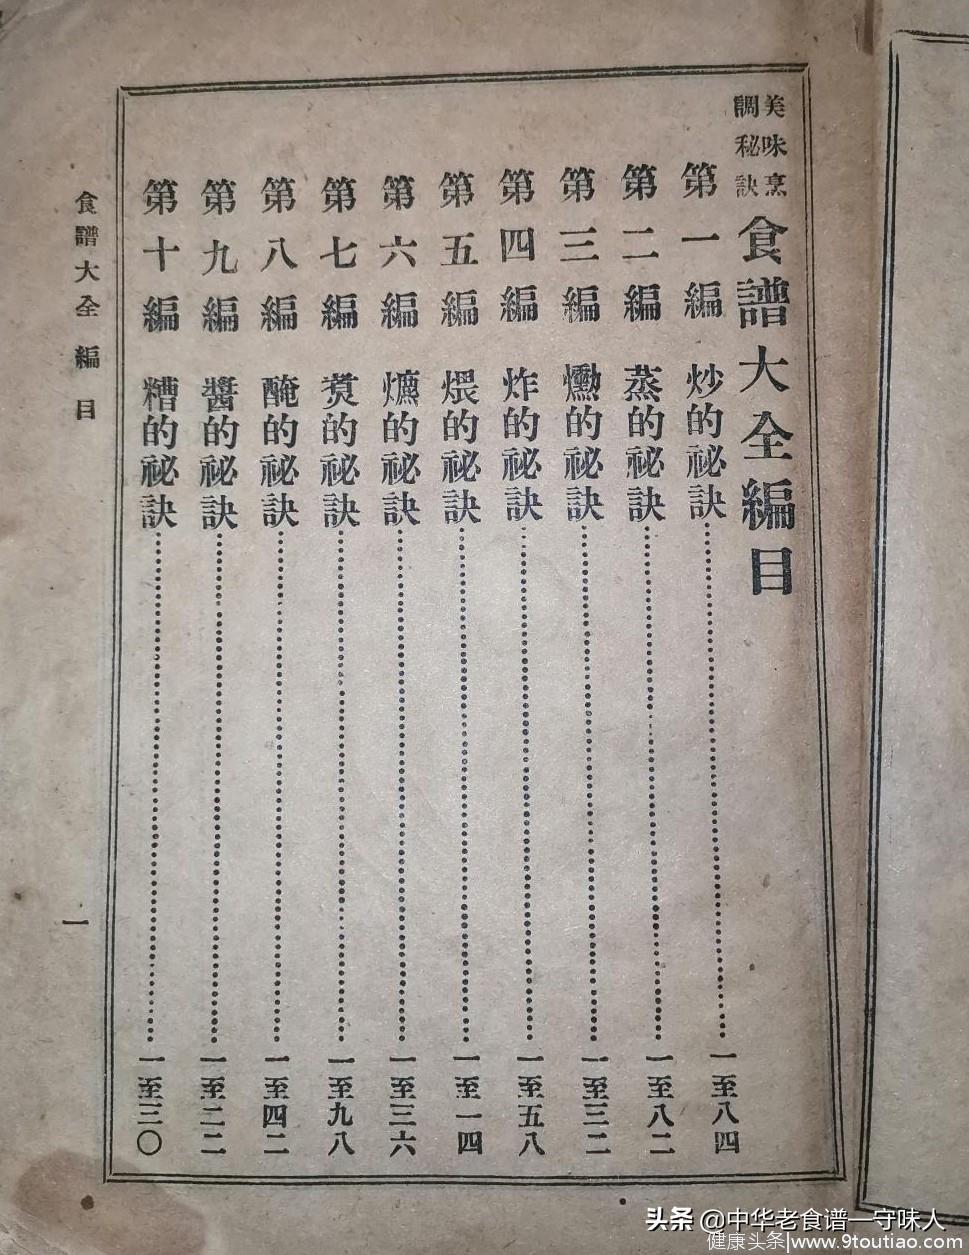 美味烹
調秘訣
食譜大全編目
第一編 炒的祕訣……一至八四
第二編 蒸的祕訣……一至八二
第三編 爋的祕訣……一至三二
第四編 炸的祕訣……一至五八
第五編 煨的祕訣……一至一四
第六編 的祕訣……一至三六
第七編 的祕訣……一至九八
第八編 醃的祕訣……一至四二
第九編 醬的祕訣……一至二二
第十編 糟的祕訣……一至三〇
食譜大全 編目
一
头条 @中华老食谱一守味人
健康头条|www.9toutiao.com